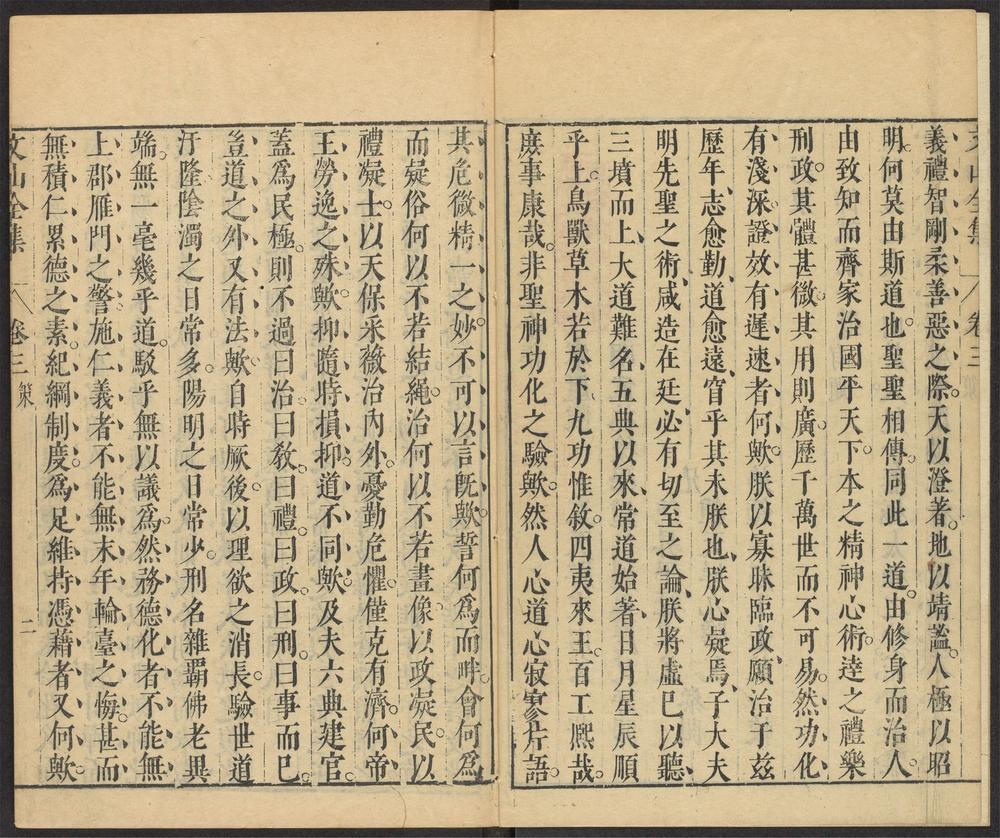 文山全集 卷三
義禮智剛柔善惡之際天以澄著地以靖謐人極以昭
明何莫由斯道也聖聖相傳同此一道由修身而治人
由致知而齊家治國平天下本之精神心術達之禮樂
刑政其體甚微其用則廣歷千萬世而不可易然功化
有淺深證效有遲速者何歟朕以寡昧臨政願治于兹
歷年志愈勤道愈遠窅乎其未朕也朕心疑焉子大夫
明先聖之術咸造在廷必有切至之論朕將虛已以聽
三墳而上大道難名五典以來常道始著日月星辰順
乎上鳥獸草木若於下九功惟敘四夷來王百工熈哉
庶事康哉非聖神功化之驗歟然人心道心寂寥片語
其危微精一之妙不可以言旣歟誓何爲而畔會何爲
而疑俗何以不若結繩治何以不若畫像以政凝民以
禮凝士以天保采薇治內外憂勤危懼僅克有濟何帝
王勞逸之殊歟抑隨時損抑道不同歟及夫六典建官
蓋爲民極則不過曰治曰敎曰禮曰政曰刑曰事而已
豈道之外又有法歟自時厥後以理欲之消長驗世道
汙隆陰濁之日常多陽明之日常少刑名雜霸佛老異
端無一毫幾乎道駁乎無以議爲然務德化者不能無
上郡雁門之警施仁義者不能無末年輪臺之悔甚而
無積仁累德之素紀綱制度爲足維持憑藉者又何歟
文山全集 卷三 策 二